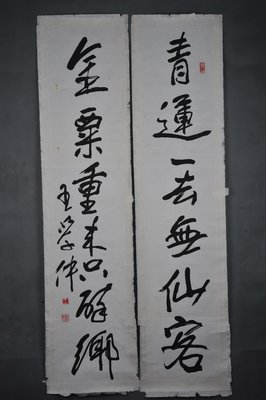 青蓮一去無仙客
金粟重来只醉鄉
王学仲